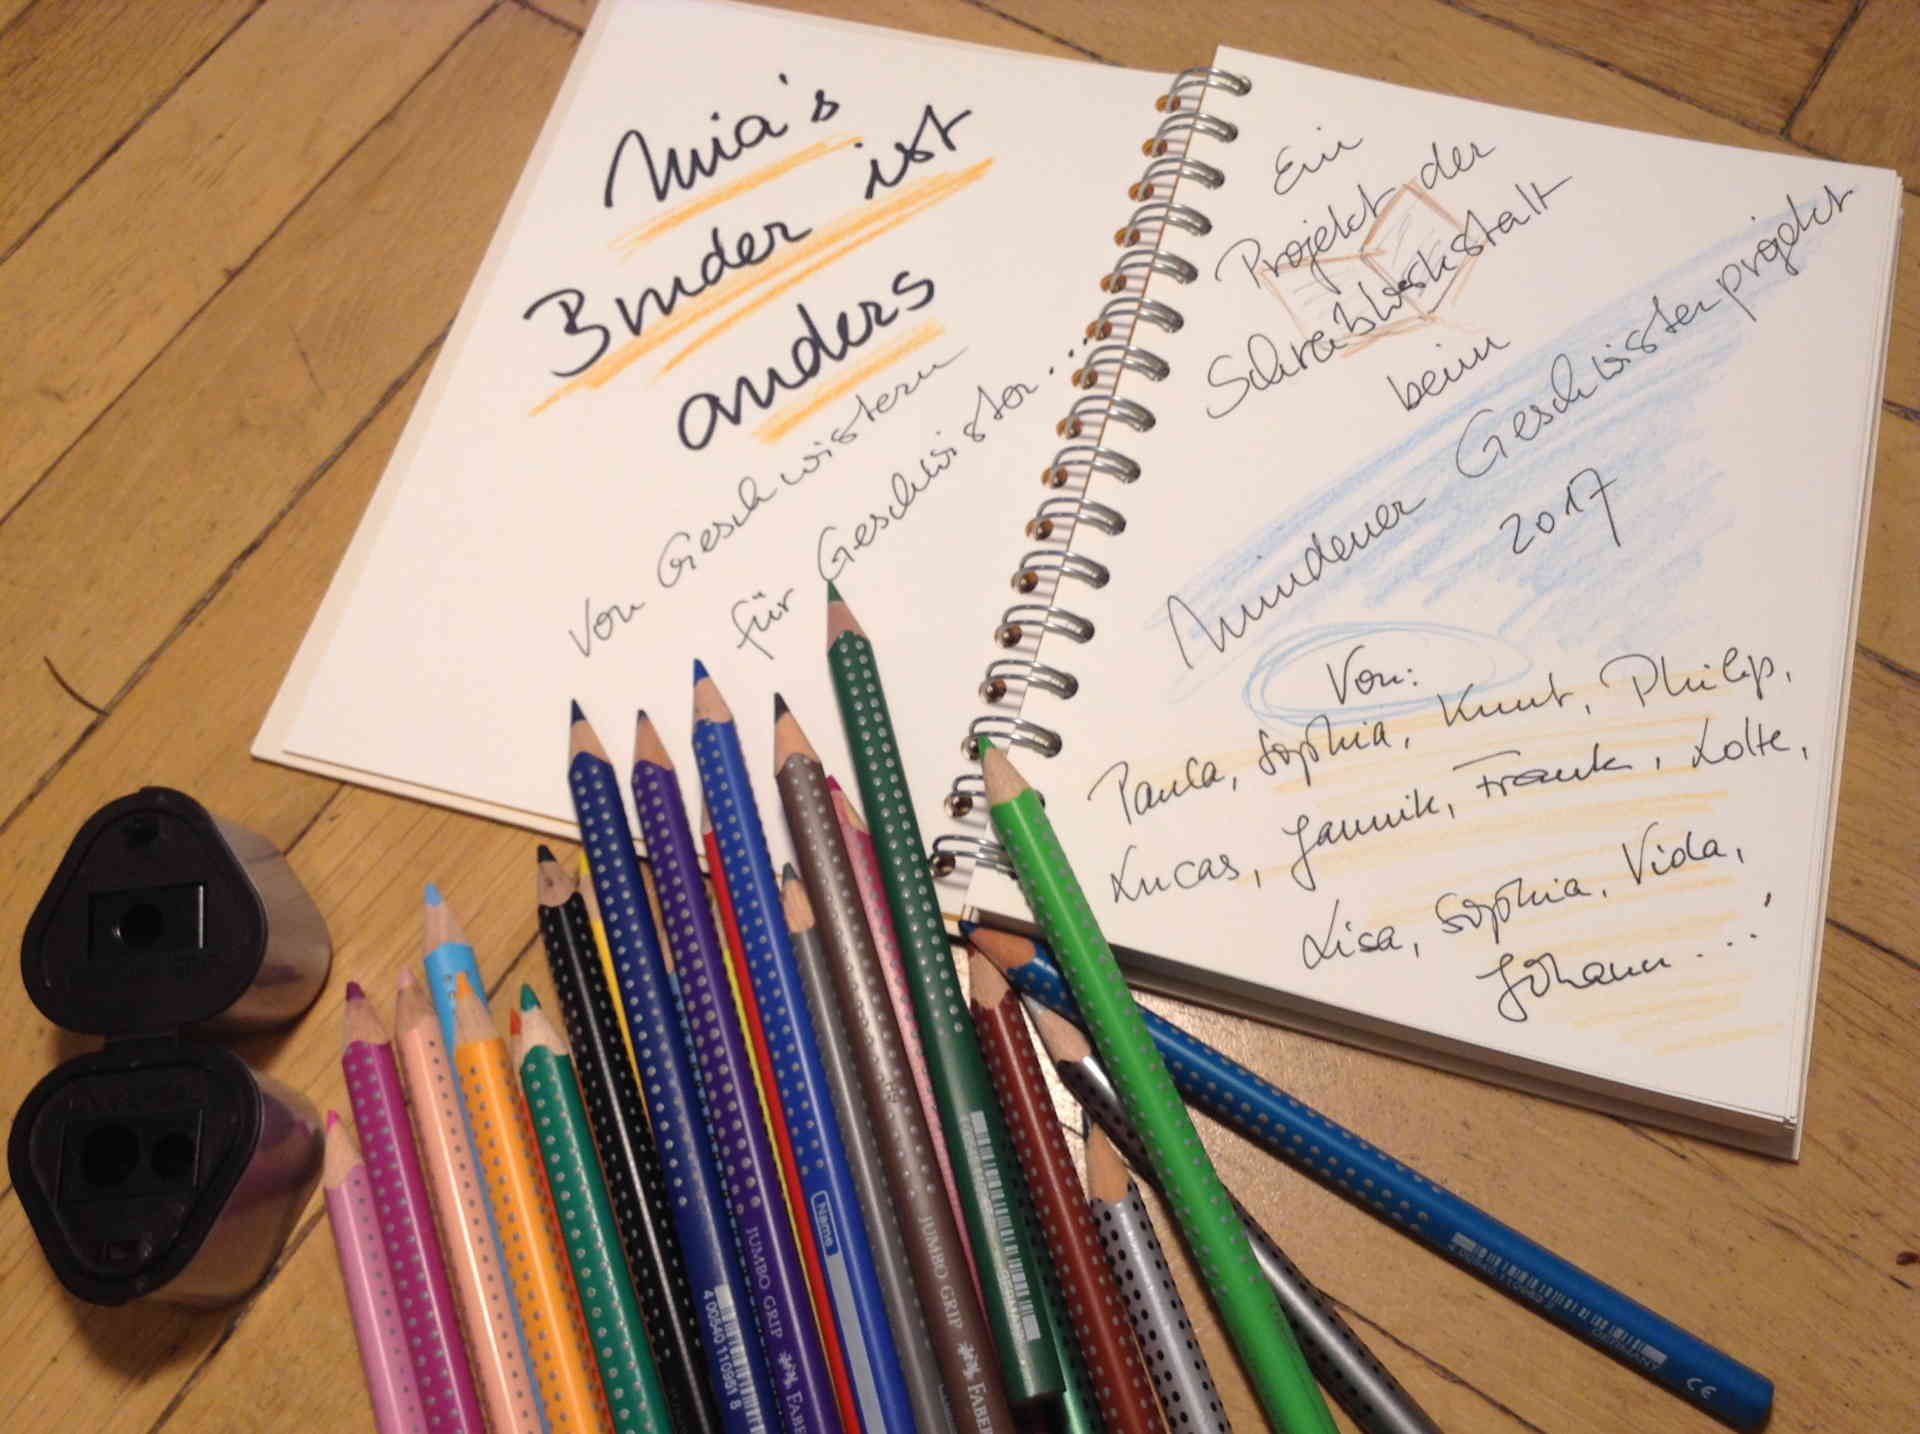 Mia's
Bruder ist
anders
Von Geschwistern
für Geschwister...
Ein
Projekt der
Schreibwerkstatt
beim
Mindener Geschwisterprojekt
2017
Von:
Paula, Sophia, Knut, Philip,
Lucas, Jannik, Frank, Lotte,
Lisa, Sophia, Vida,
Johann...!
JUMBO GRIP FABE
Name
JUMBO GRIP FABER
4 00540 110951 8
GERMANY
CE